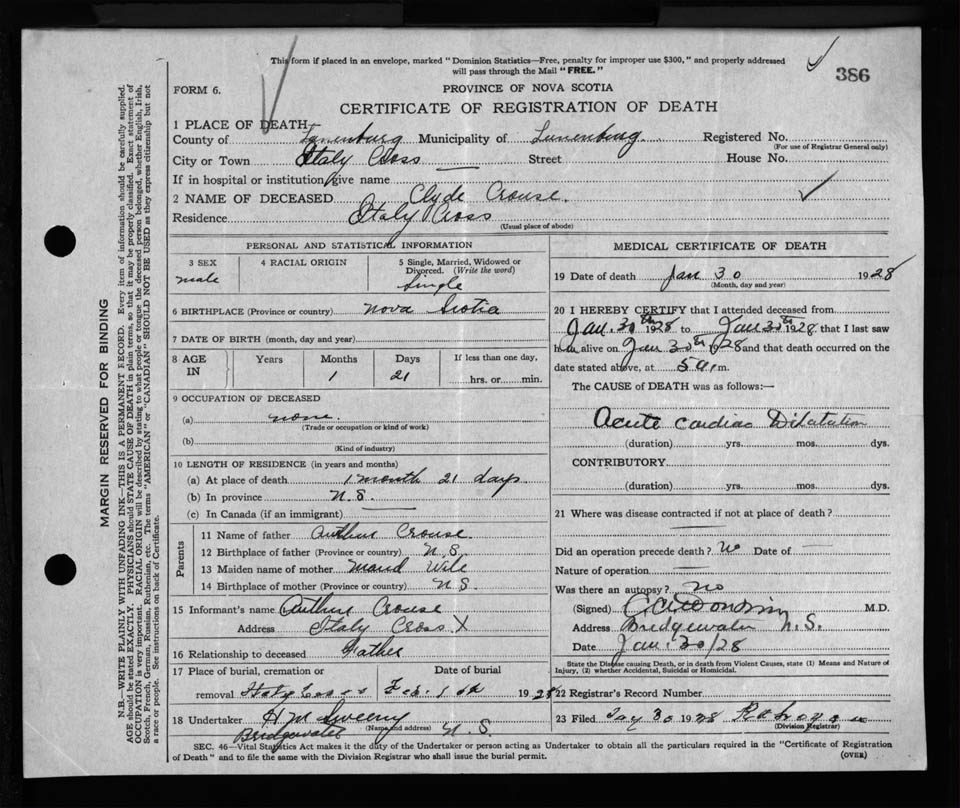 This form if placed in an envelope, marked "Dominion Statistics—Free, penalty for improper use $300," and properly addressed
will pass through the Mail "FREE."
386
FORM 6.
PROVINCE OF NOVA SCOTIA
CERTIFICATE OF REGISTRATION OF DEATH
1 PLACE OF DEATH
County of Lunenburg Municipality of Lunenburg Registered No.
(For use of Registrar General only)
City or Town Italy Cross Street House No.
If in hospital or institution give name
2 NAME OF DECEASED Clyde Crouse.
Residence Italy Cross
(Usual place of abode)
PERSONAL AND STATISTICAL INFORMATION
3 SEX
male
4 RACIAL ORIGIN
5 Single, Married, Widowed or
Divorced. (Write the word)
Single
6 BIRTHPLACE (Province or country) Nova Scotia
7 DATE OF BIRTH (month, day and year)
8 AGE IN Years Months Days If less than one day,
1 21 hrs. or min.
9 OCCUPATION OF DECEASED
(a) none.
(Trade or occupation or kind of work)
(b)
(Kind of industry)
10 LENGTH OF RESIDENCE (in years and months)
(a) At place of death 1 month 21 days
(b) In province N.S.
(c) In Canada (if an immigrant)
Parents
11 Name of father Arthur Crouse
12 Birthplace of father (Province or country) N.S
13 Maiden name of mother Maud Wile
14 Birthplace of mother (Province or country) N.S.
15 Informant's name Arthur Crouse
Address Italy Cross X
16 Relationship to deceased Father
17 Place of burial, cremation or Date of burial
removal Italy Cross Feb. 1st 1928
18 Undertaker H M Sweeny
(Name and address)
Bridgewater N.S.
MEDICAL CERTIFICATE OF DEATH
19 Date of death Jan 30 1928
(Month, day and year)
20 I HEREBY CERTIFY that I attended deceased from
Jan. 30th 1928 to Jan 30th 1928 that I last saw
him alive on Jan 30th 1928 and that death occurred on the
date stated above, at 5 a.m.
The CAUSE of DEATH was as follows:—
Acute Cardiac Dilatation
(duration) yrs. mos. dys.
CONTRIBUTORY
(duration) yrs. mos. dys.
21 Where was disease contracted if not at place of death?
Did an operation precede death? No Date of
Nature of operation
Was there an autopsy? No
(Signed) M.D.
Address Bridgewater N.S.
Date Jan. 30/28
State the Disease causing Death, or in death from Violent Causes, state (1) Means and Nature of
Injury, (2) whether Accidental, Suicidal or Homicidal.
22 Registrar's Record Number
23 Filed 30 1928
(Division Registrar)
SEC. 46—Vital Statistics Act makes it the duty of the Undertaker or person acting as Undertaker to obtain all the particulars required in the "Certificate of Registration
of Death" and to file the same with the Division Registrar who shall issue the burial permit.
(OVER)
MARGIN RESERVED FOR BINDING
N.B.—WRITE PLAINLY WITH UNFADING INK—THIS IS A PERMANENT RECORD. Every item of information should be carefully supplied.
AGE should be stated EXACTLY. PHYSICIANS should STATE CAUSE OF DEATH in plain terms, so that it may be properly classified. Exact statement of
OCCUPATION is very important. RACIAL ORIGIN will be described by stating to what people or tongue the deceased person belonged, whether English, Irish,
Scotch, French, German, Russian, Ruthenian, etc. The terms "AMERICAN" or "CANADIAN" SHOULD NOT BE USED as they express citizenship but not
a race or people. See instructions on back of Certificate.